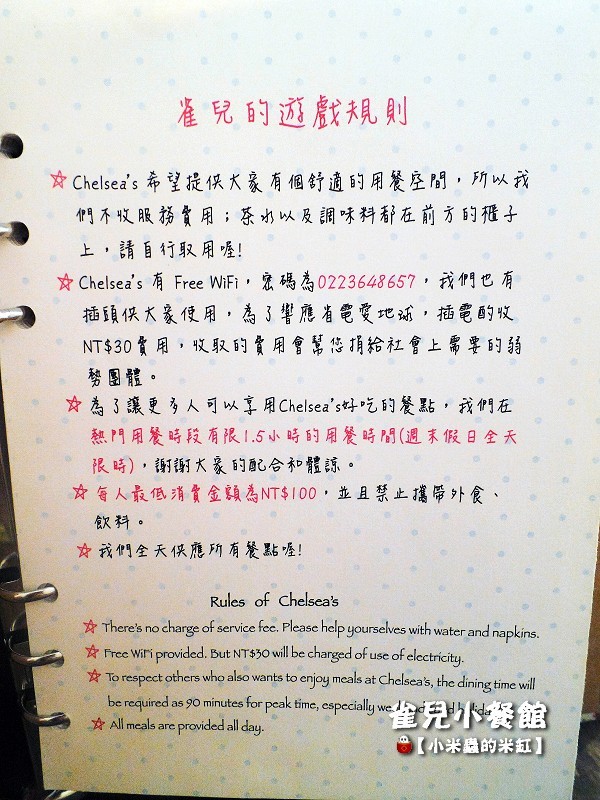 雀兒的遊戲規則
☆ Chelsea's 希望提供大家有個舒適的用餐空間，所以我
們不收服務費用；茶水以及調味料都在前方的櫃子
上，請自行取用喔!
☆ Chelsea's 有 Free WiFi，密碼為0223648657，我們也有
插頭供大家使用，為了響應省電愛地球，插電酌收
NT$30費用，收取的費用會幫您捐給社會上需要的弱
勢團體。
☆ 為了讓更多人可以享用Chelsea's好吃的餐點，我們在
熱門用餐時段有限1.5小時的用餐時間(週末假日全天
限時)，謝謝大家的配合和體諒。
☆ 每人最低消費金額為NT$100，並且禁止攜帶外食、
飲料。
☆ 我們全天供應所有餐點喔!
Rules of Chelsea's
☆ There's no charge of service fee. Please help yourselves with water and napkins.
☆ Free WiFi provided. But NT$30 will be charged of use of electricity.
☆ To respect others who also wants to enjoy meals at Chelsea's, the dining time will
be required as 90 minutes for peak time, especially
☆ All meals are provided all day.
雀兒小餐館
【小米蟲的米缸】